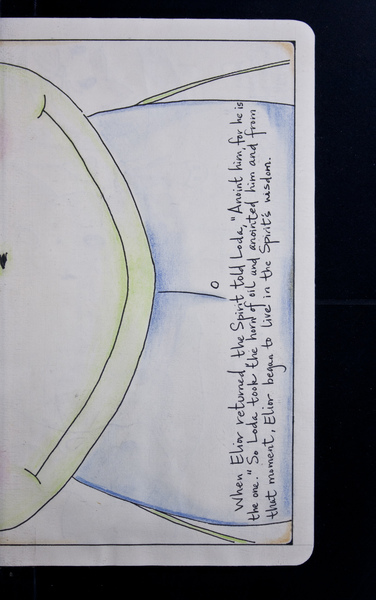 When Elior returned the Spirit told Loda, "Anoint him, for he is
the one." So Loda took the horn of oil and anointed him and from
that moment, Elior began to live in the Spirit's wisdom.